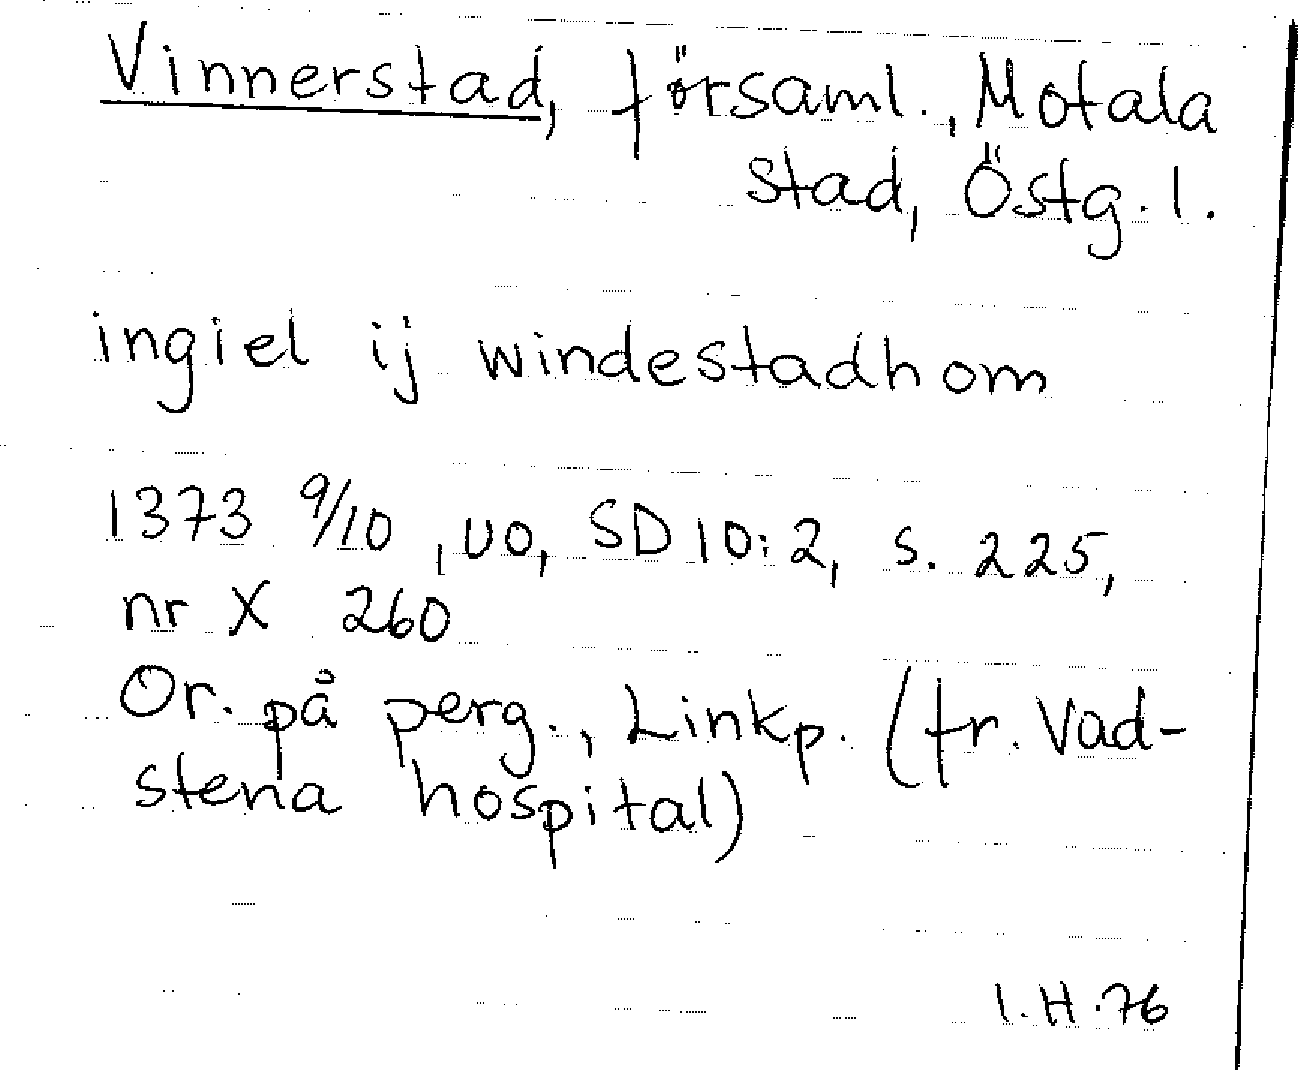 Vinnerstad, församl., Motala
stad, Östg. l.
ingiel ij windestadhom
1373 9/10, UO, SD 10:2, s. 225,
nr X 260
Or. på perg., Linkp. (fr. Vad-
stena hospital)
I.H.76